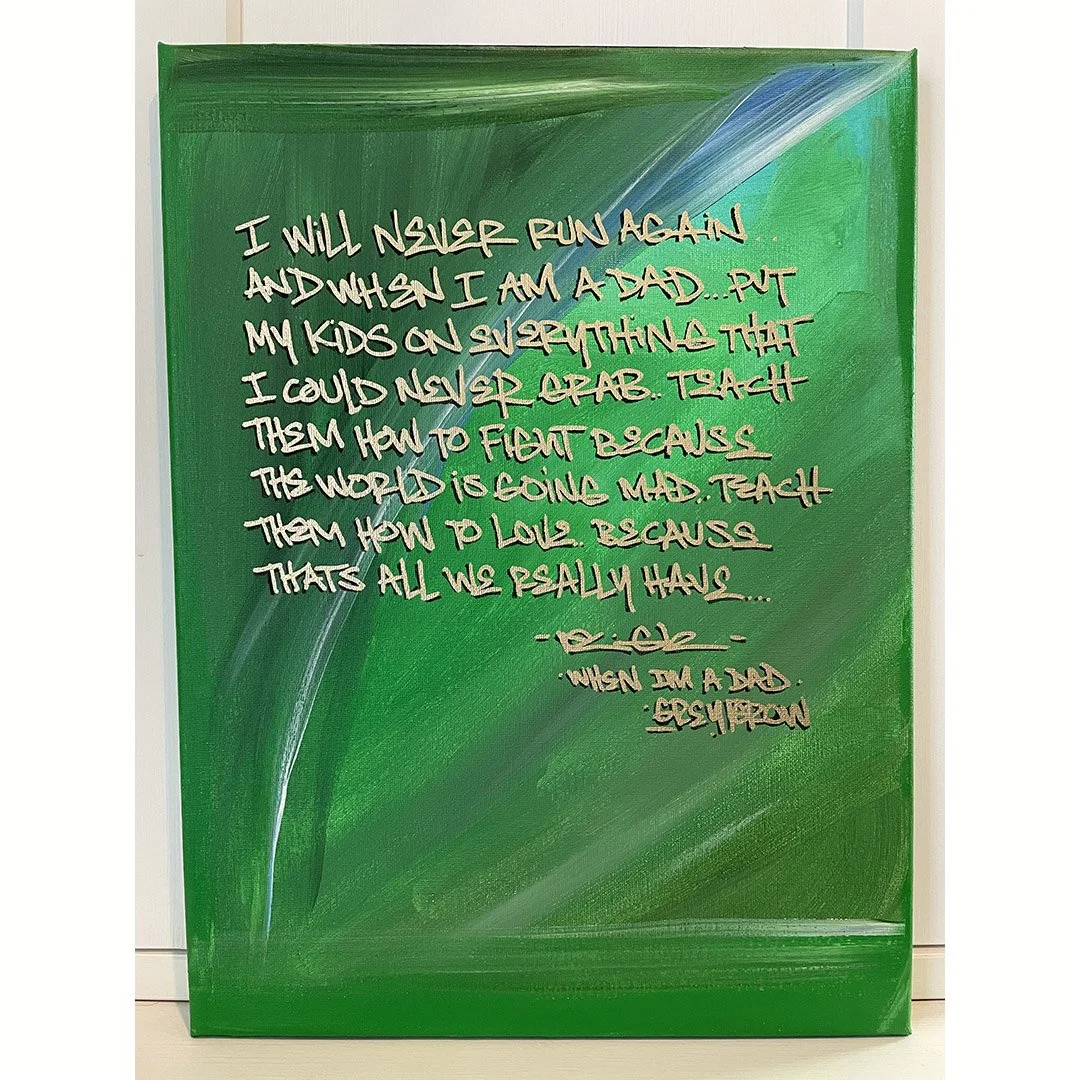 I WILL NEVER RUN AGAIN...
AND WHEN I AM A DAD...PUT
MY KIDS ON EVERYTHING THAT
I COULD NEVER GRAB.. TEACH
THEM HOW TO FIGHT BECAUSE
THE WORLD IS GOING MAD.. TEACH
THEM HOW TO LOVE.. BECAUSE
THATS ALL WE REALLY HAVE...
·WHEN IM A DAD·
·GREYBROW